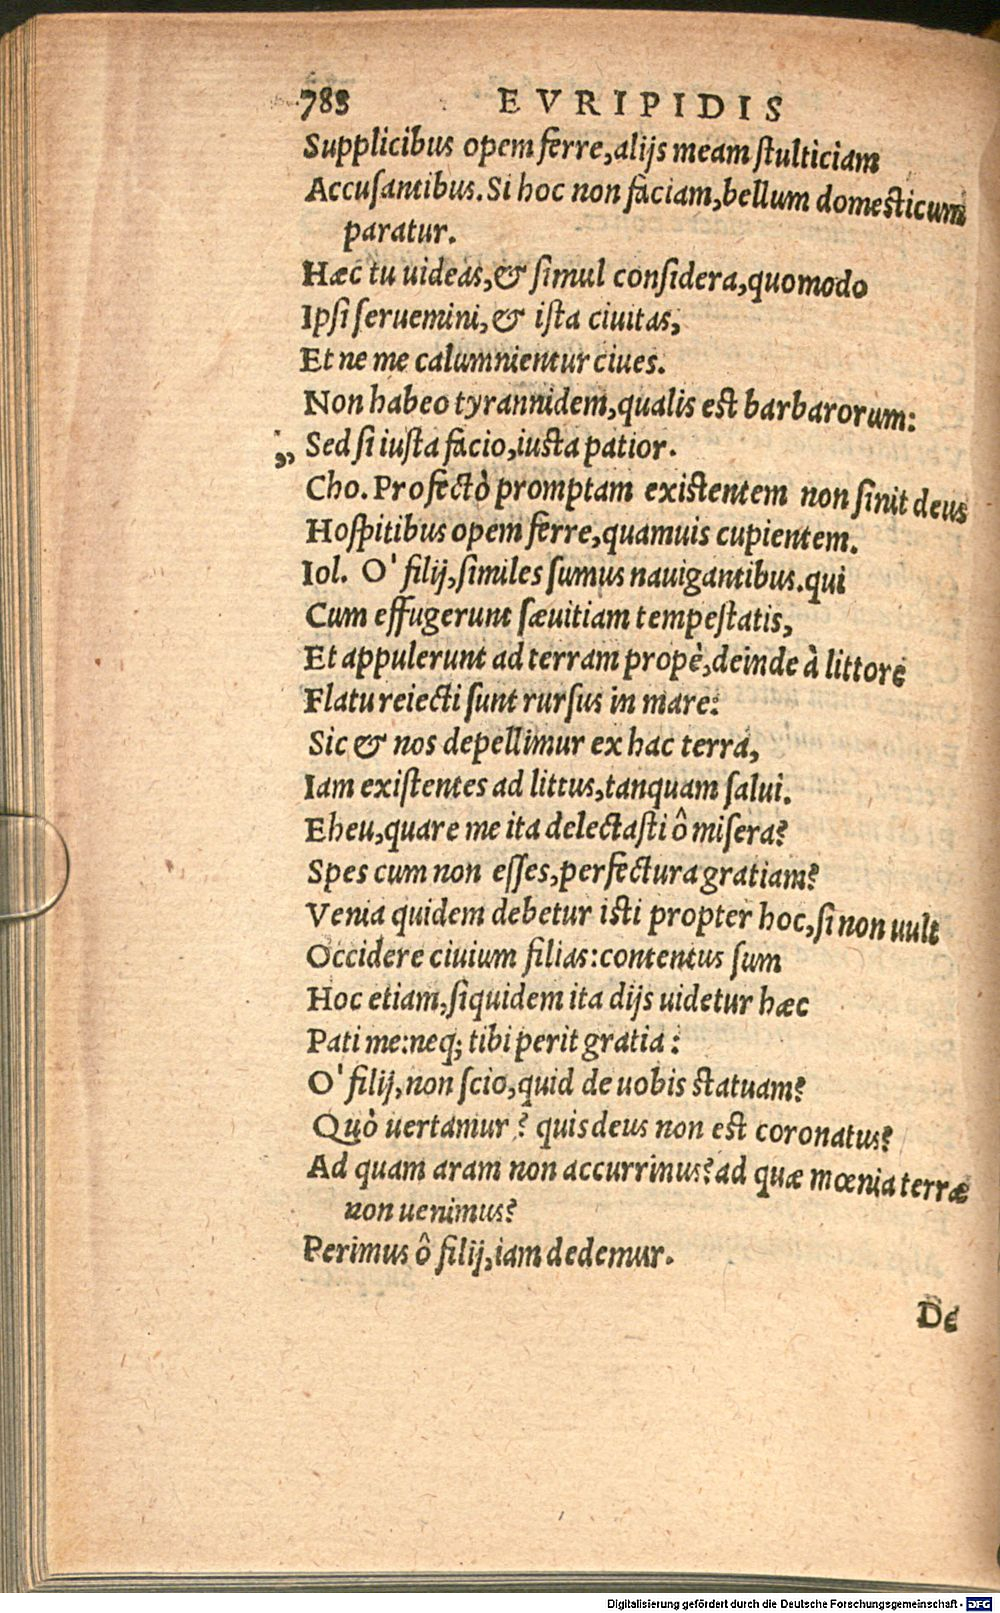 783 EVRIPIDIS
Supplicibus opem ferre,alijs meam ſtulticiam
Accuſantibus.Si hoc non faciam,bellum domesticum
paratur.
Hæc tu uideas,& ſimul conſidera,quomodo
Ipſi ſeruemini,& iſta ciuitas,
Et ne me calumnientur ciues.
Non habeo tyrannidem,qualis est barbarorum:
„ Sed ſi iuſta facio,iusta patior.
Cho. Profectò promptam existentem non ſinit deus
Hoſpitibus opem ferre,quamuis cupientem.
Iol. O' filij,ſimiles ſumus nauigantibus.qui
Cum effugerunt ſæuitiam tempeſtatis,
Et appulerunt ad terram propè,deinde à littore
Flatu reiecti ſunt rurſus in mare:
Sic & nos depellimur ex hac terra,
Iam exiſtentes ad littus,tanquam ſalui.
Eheu,quare me ita delectaſti ô miſera?
Spes cum non eſſes,perfectura gratiam?
Venia quidem debetur isti propter hoc,ſi non uult
Occidere ciuium filias:contentus ſum
Hoc etiam,ſiquidem ita dijs uidetur hæc
Pati me:neq; tibi perit gratia:
O' filij,non ſcio,quid de uobis statuam?
Quò uertamur? quis deus non est coronatus?
Ad quam aram non accurrimus?ad quæ mœnia terræ
non uenimus?
Perimus ô filij,iam dedemur.
De
Digitalisierung gefördert durch die Deutsche Forschungsgemeinschaft - DFG